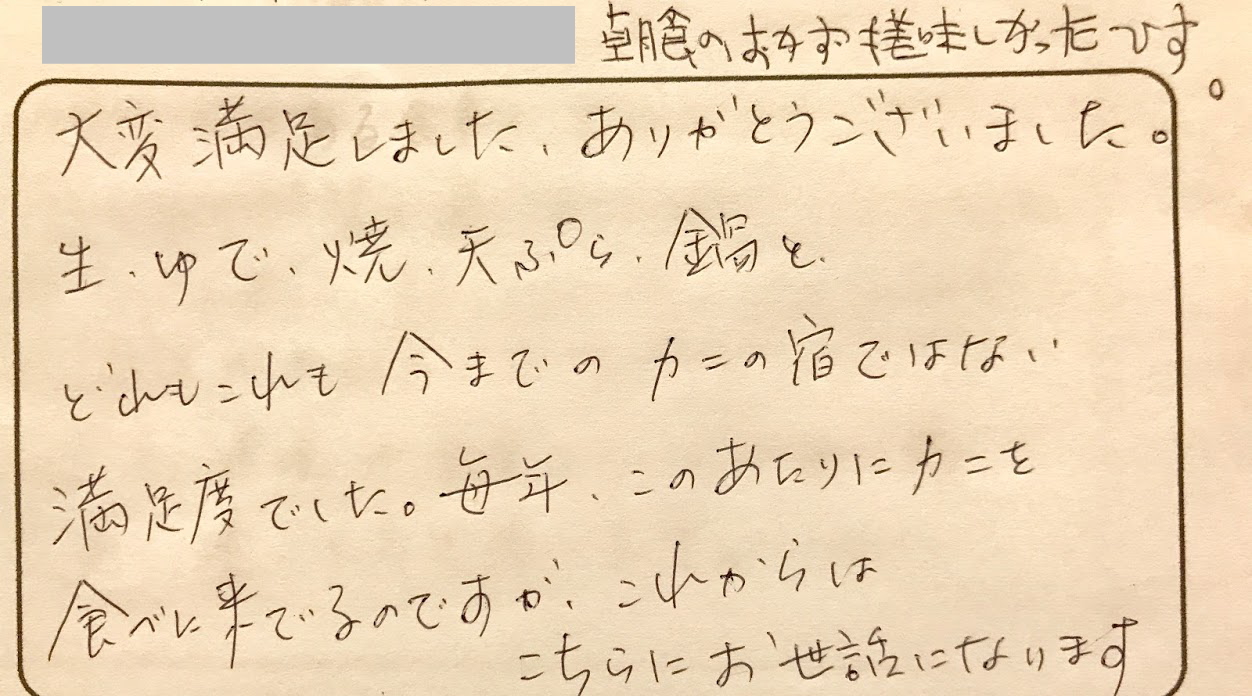 朝食のおかず美味しかったです。
大変満足しました、ありがとうございました。
生、ゆで、焼、天ぷら、鍋と、
どれもこれも今までのカニの宿ではない
満足度でした。毎年、このあたりにカニを
食べに来てるのですが、これからは
こちらにお世話になります